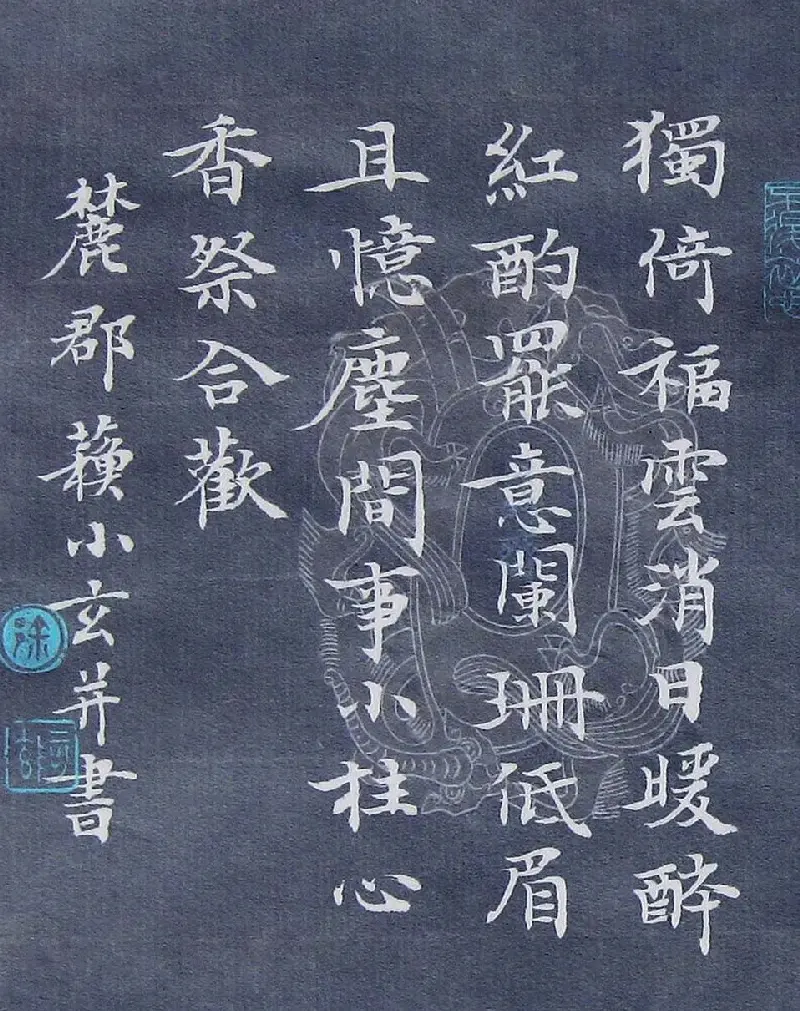 獨倚福雲消日暖醉
紅酌罷意闌珊低眉
且憶塵間事小柱心
香祭合歡
麓郡蘋小玄并書